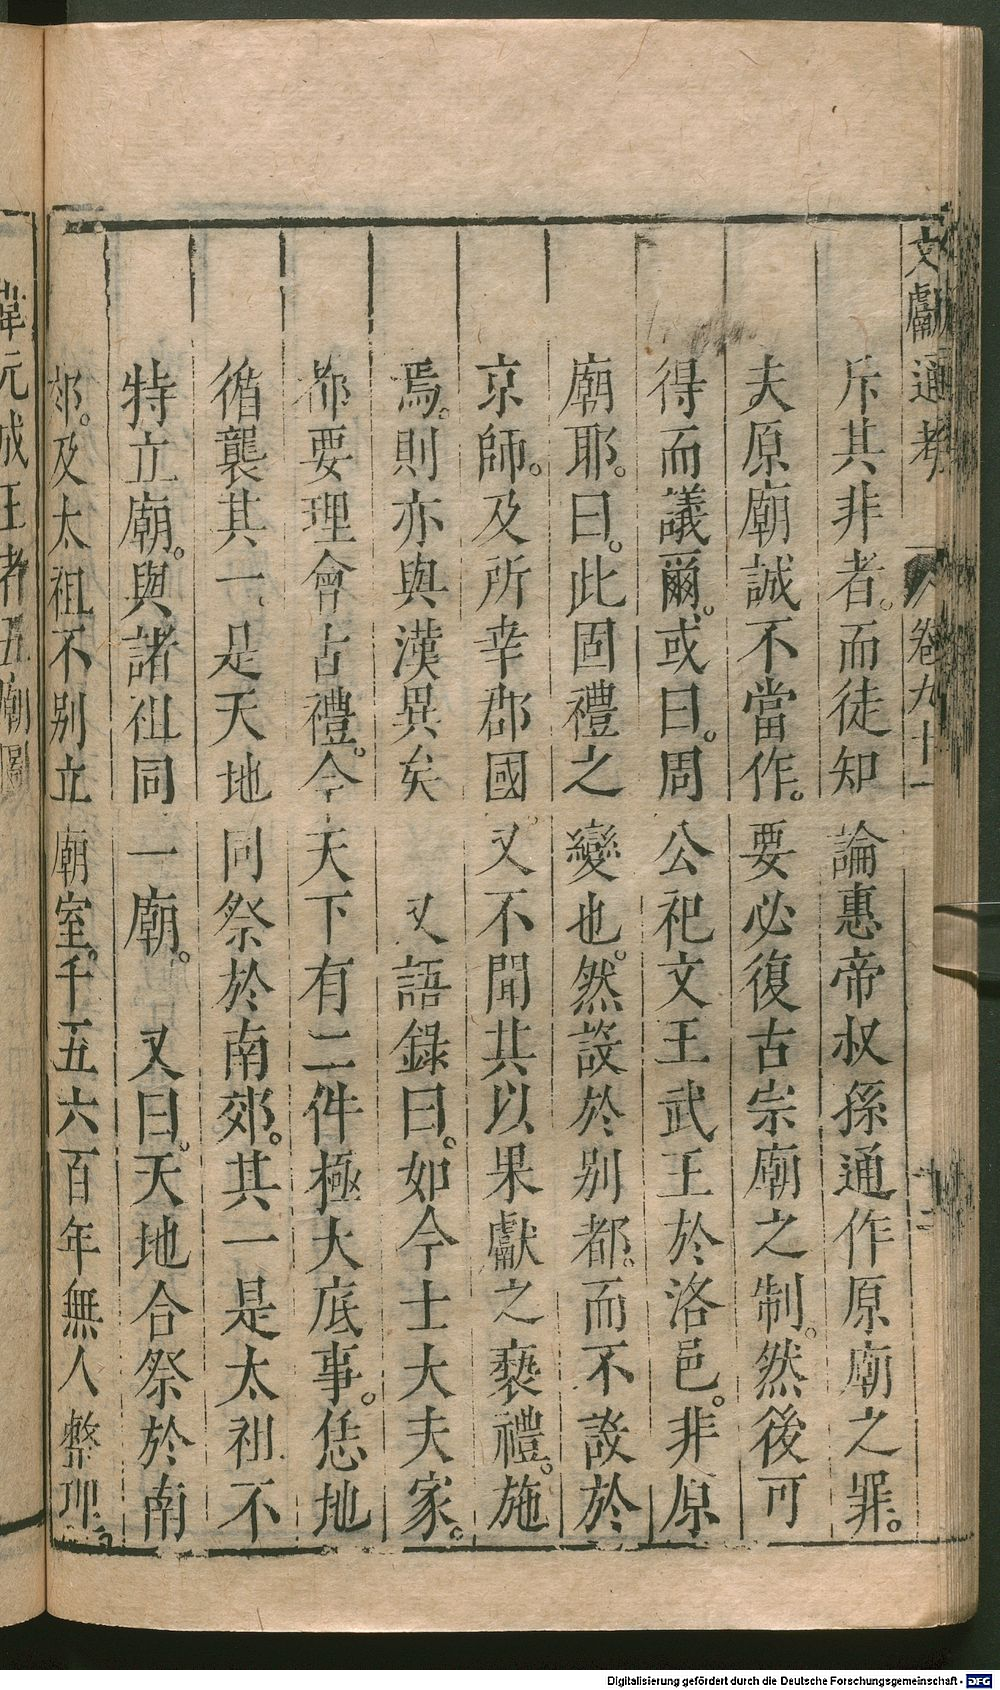 文獻通考 卷九十一 十二
斥其非者。而徒知論惠帝叔孫通作原廟之罪。
夫原廟誠不當作。要必復古宗廟之制。然後可
得而議爾。或曰。周公祀文王武王於洛邑。非原
廟耶。曰。此固禮之變也。然設於别都。而不設於
京師。及所幸郡國。又不聞其以果獻之褻禮。施
焉。則亦與漢異矣 又語錄曰。如今士大夫家。
都要理會古禮。今天下有二件極大底事。恁地
循襲其一是天地同祭於南郊。其一是太祖不
特立廟。與諸祖同一廟。 又曰。天地合祭於南
郊。及太祖不别立廟室。千五六百年無人整理。
韋元成王者五廟圖
Digitalisierung gefördert durch die Deutsche Forschungsgemeinschaft - DFG